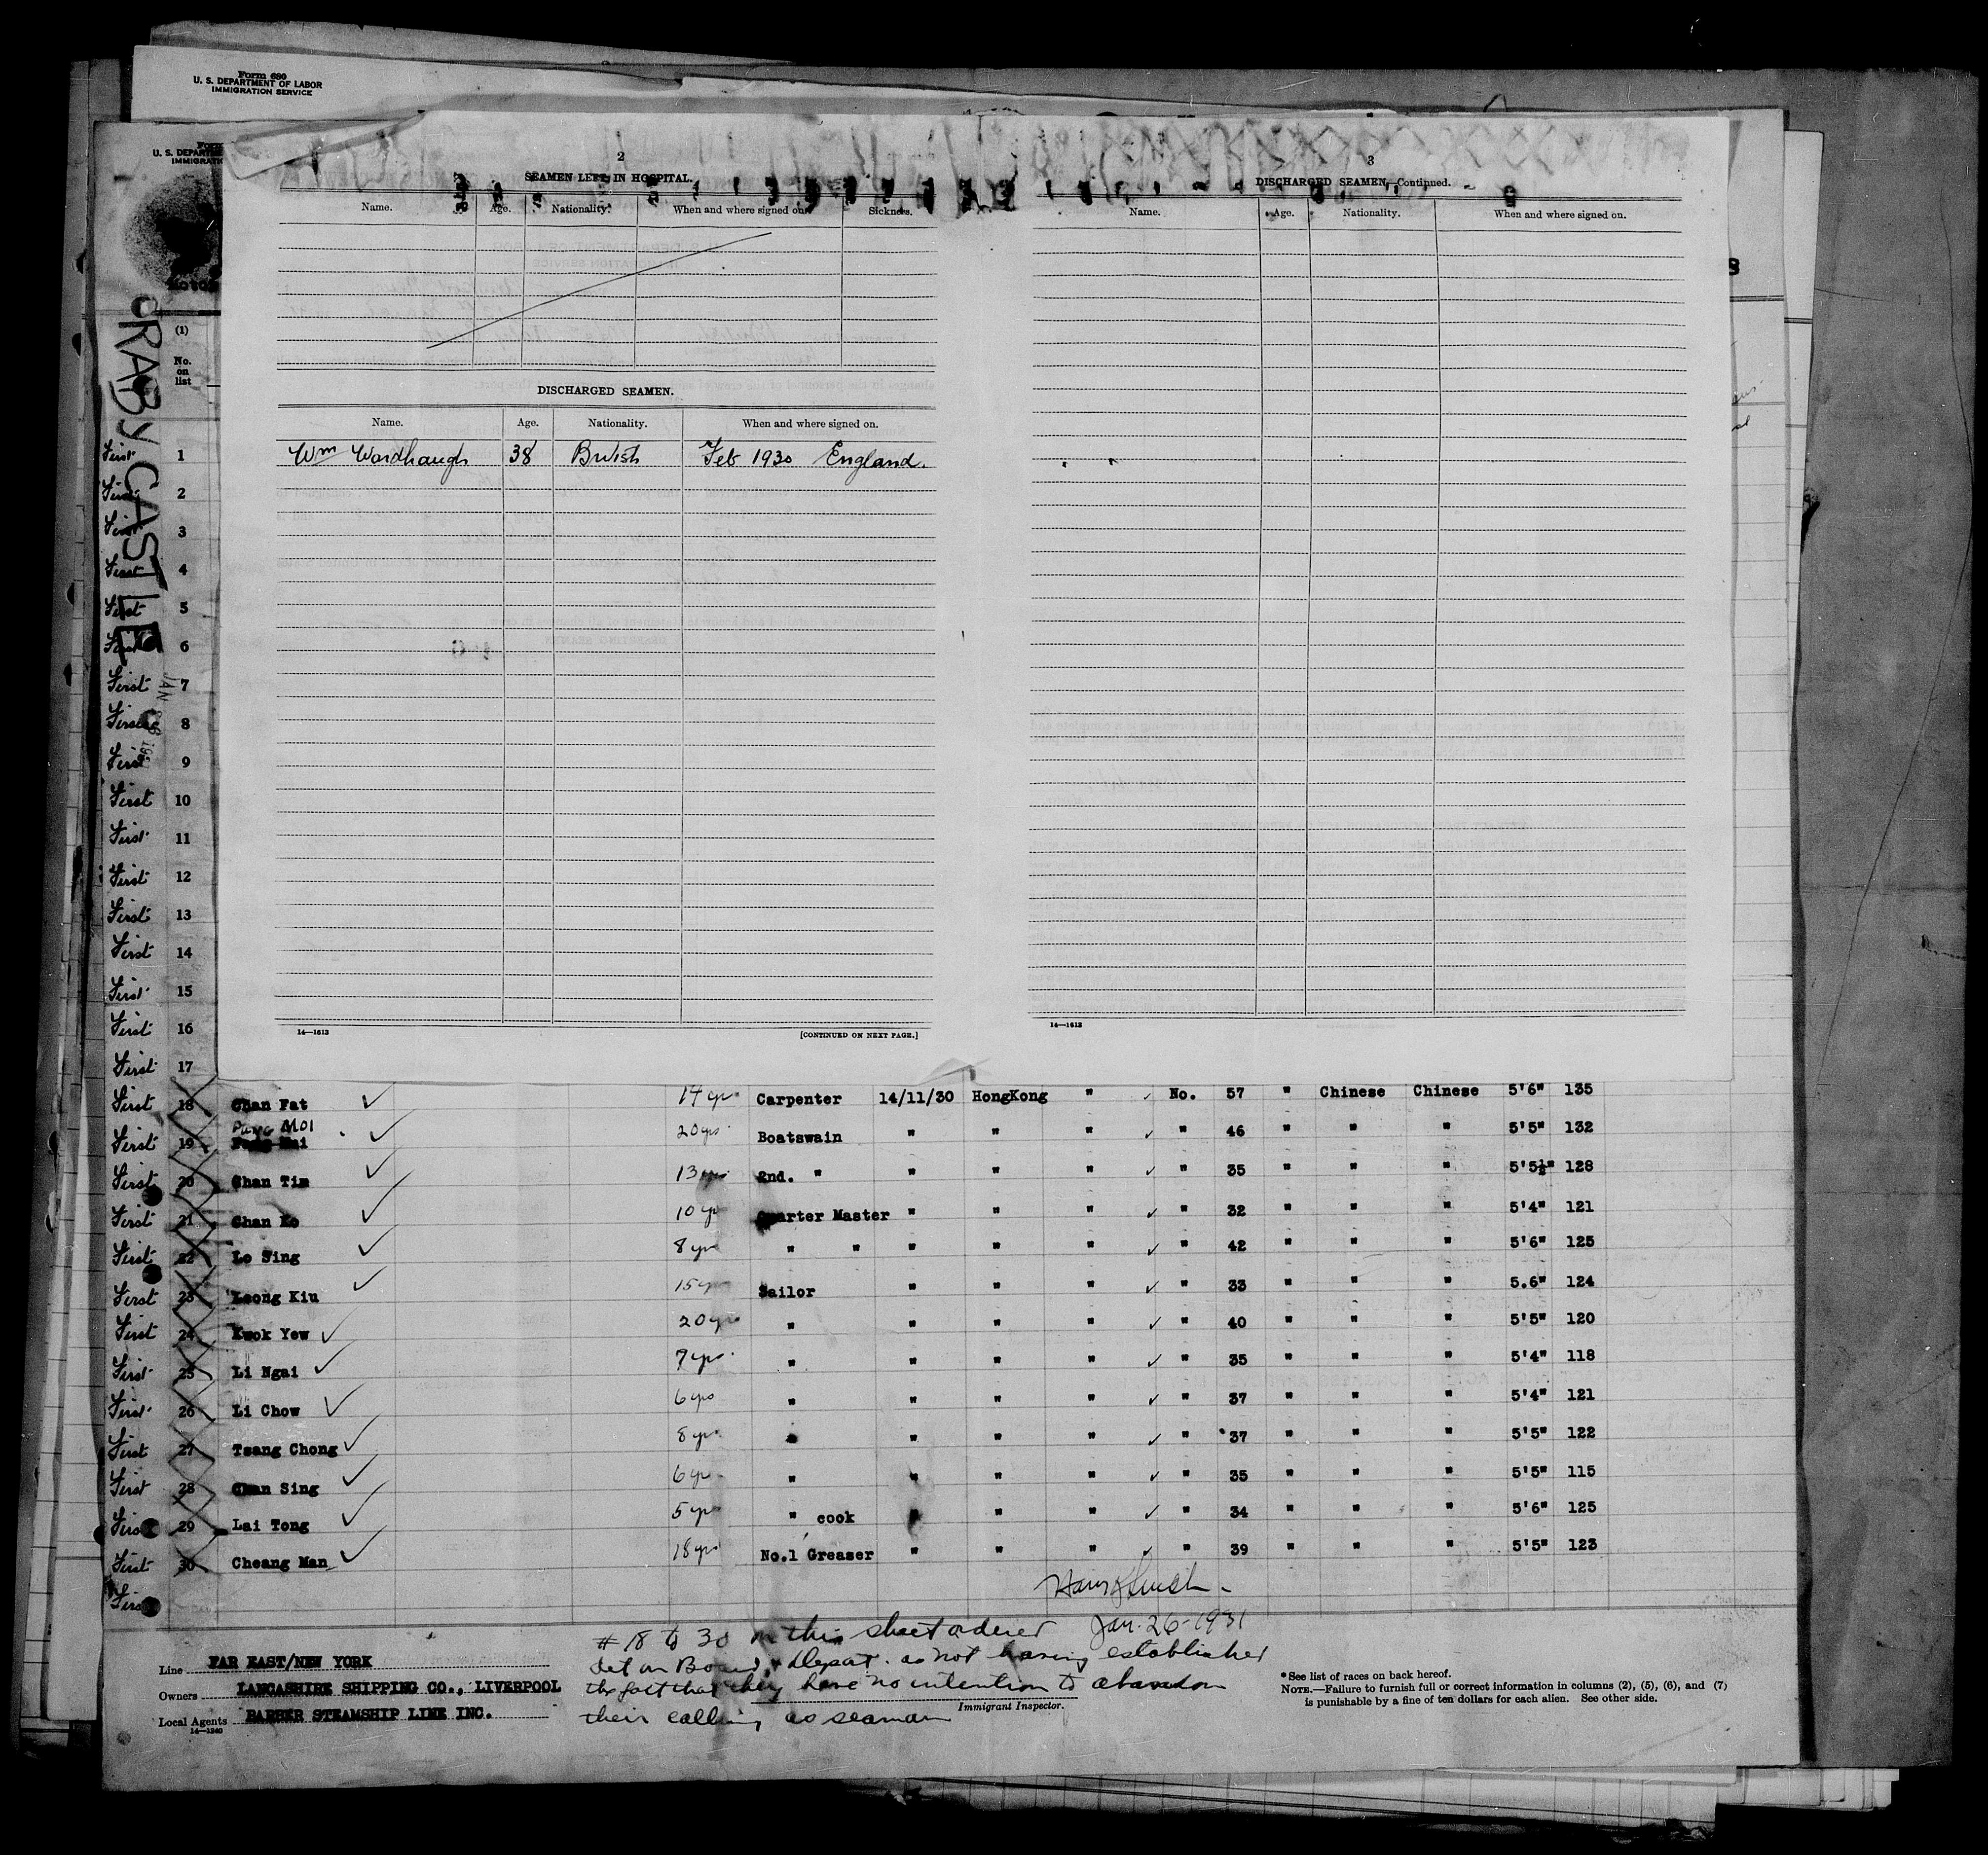 Form 680
U. S. DEPARTMENT OF LABOR
IMMIGRATION SERVICE
2
SEAMEN LEFT IN HOSPITAL.
Name. Age. Nationality. When and where signed on. Sickness.
DISCHARGED SEAMEN.
Name. Age. Nationality. When and where signed on.
Wm Wardhaugh 38 British Feb 1930 England.
14—1613 [CONTINUED ON NEXT PAGE.]
3
DISCHARGED SEAMEN—Continued.
Name. Age. Nationality. When and where signed on.
14—1613
RABY CASTLE
(1)
No.
on
list
First 1
First 2
First 3
First 4
First 5
First 6
First 7
First 8
First 9
First 10
First 11
First 12
First 13
First 14
First 15
First 16
First 17
First 18 Chan Fat 14 yrs Carpenter 14/11/30 HongKong " No. 57 " Chinese Chinese 5'6" 135
First 19 Pang Moi 20 yrs Boatswain " " " " 46 " " " 5'5" 132
First 20 Chan Tim 13 yrs 2nd. " " " " " 35 " " " 5'5½" 128
First 21 Chan Ko 10 yrs Quarter Master " " " " 32 " " " 5'4" 121
First 22 Lo Sing 8 yrs " " " " " " 42 " " " 5'6" 125
First 23 Leong Kiu 15 yrs Sailor " " " " 33 " " " 5.6" 124
First 24 Kwok Yew 20 yrs " " " " " 40 " " " 5'5" 120
First 25 Li Ngai 7 yrs " " " " " 35 " " " 5'4" 118
First 26 Li Chow 6 yrs " " " " " 37 " " " 5'4" 121
First 27 Tsang Chong 8 yrs " " " " " 37 " " " 5'5" 122
First 28 Chan Sing 6 yrs " " " " " 35 " " " 5'5" 115
First 29 Lai Tong 5 yrs " cook " " " " 34 " " " 5'6" 125
First 30 Cheang Man 18 yrs No.1 Greaser " " " " 39 " " " 5'5" 123
First
Jan. 26-1931
#18 to 30 on this sheet ordered
det on Board & Deport. as not having established
the fact that they have no intention to abandon
their calling as seaman
Immigrant Inspector.
Line FAR EAST/NEW YORK
Owners LANCASHIRE SHIPPING CO., LIVERPOOL
Local Agents BARBER STEAMSHIP LINE INC.
14—1240
*See list of races on back hereof.
NOTE.—Failure to furnish full or correct information in columns (2), (5), (6), and (7)
is punishable by a fine of ten dollars for each alien. See other side.